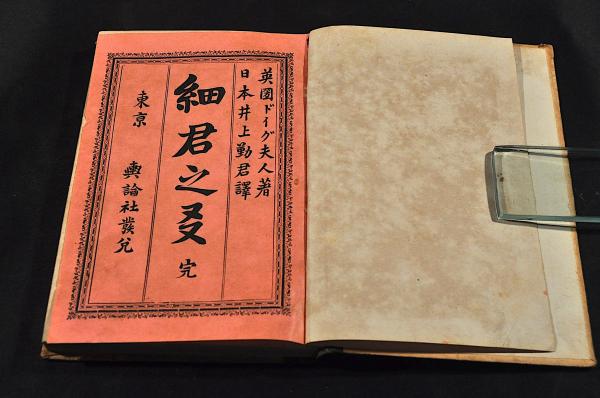 英國ドイグ夫人著
日本井上勤君譯
細君之友 完
東京 輿論社發兌